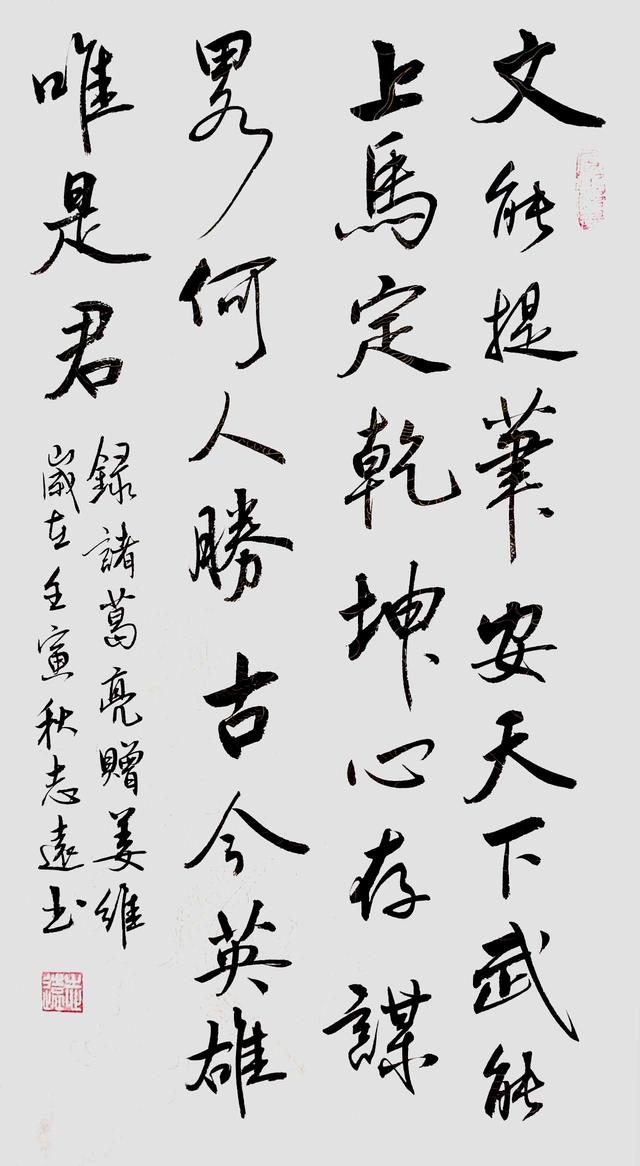 文能提筆安天下武能
上馬定乾坤心存謀
畧何人勝古今英雄
唯是君
録諸葛亮贈姜維
嵗在壬寅秋志遠书
志遠